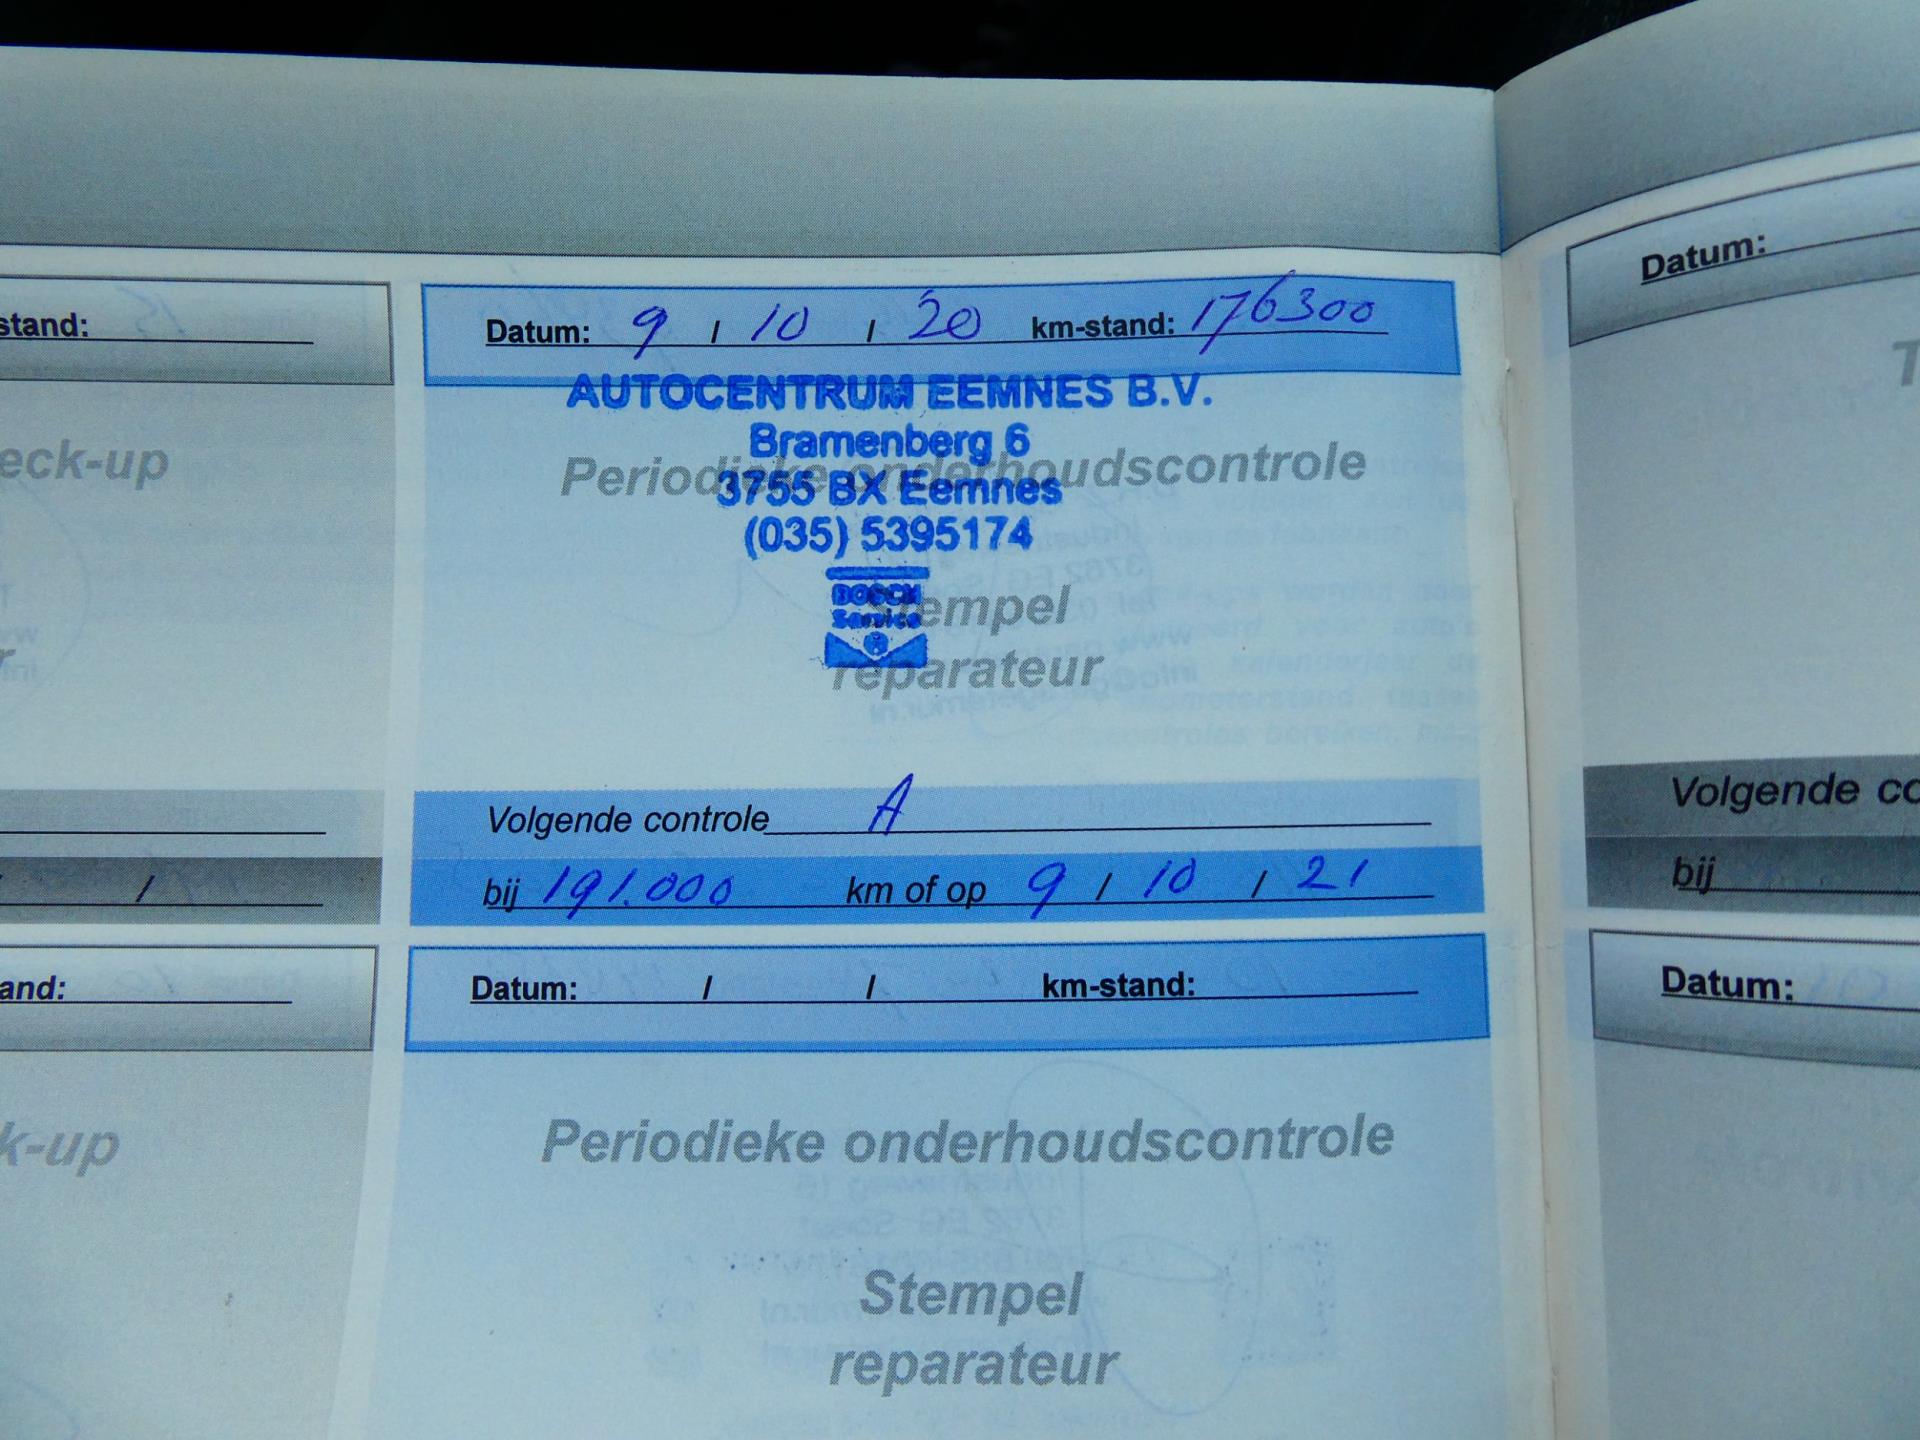 stand:
eck-up
and:
k-up
Datum: 9 / 10 / 20 km-stand: 176300
AUTOCENTRUM EEMNES B.V.
Bramenberg 6
Periodieke onderhoudscontrole
3755 BX Eemnes
(035) 5395174
BOSCH
Service
Stempel
reparateur
Volgende controle A
bij 191.000 km of op 9 / 10 / 21
Datum: / / km-stand:
Periodieke onderhoudscontrole
Stempel
reparateur
Datum:
T
Volgende co
bij
Datum: